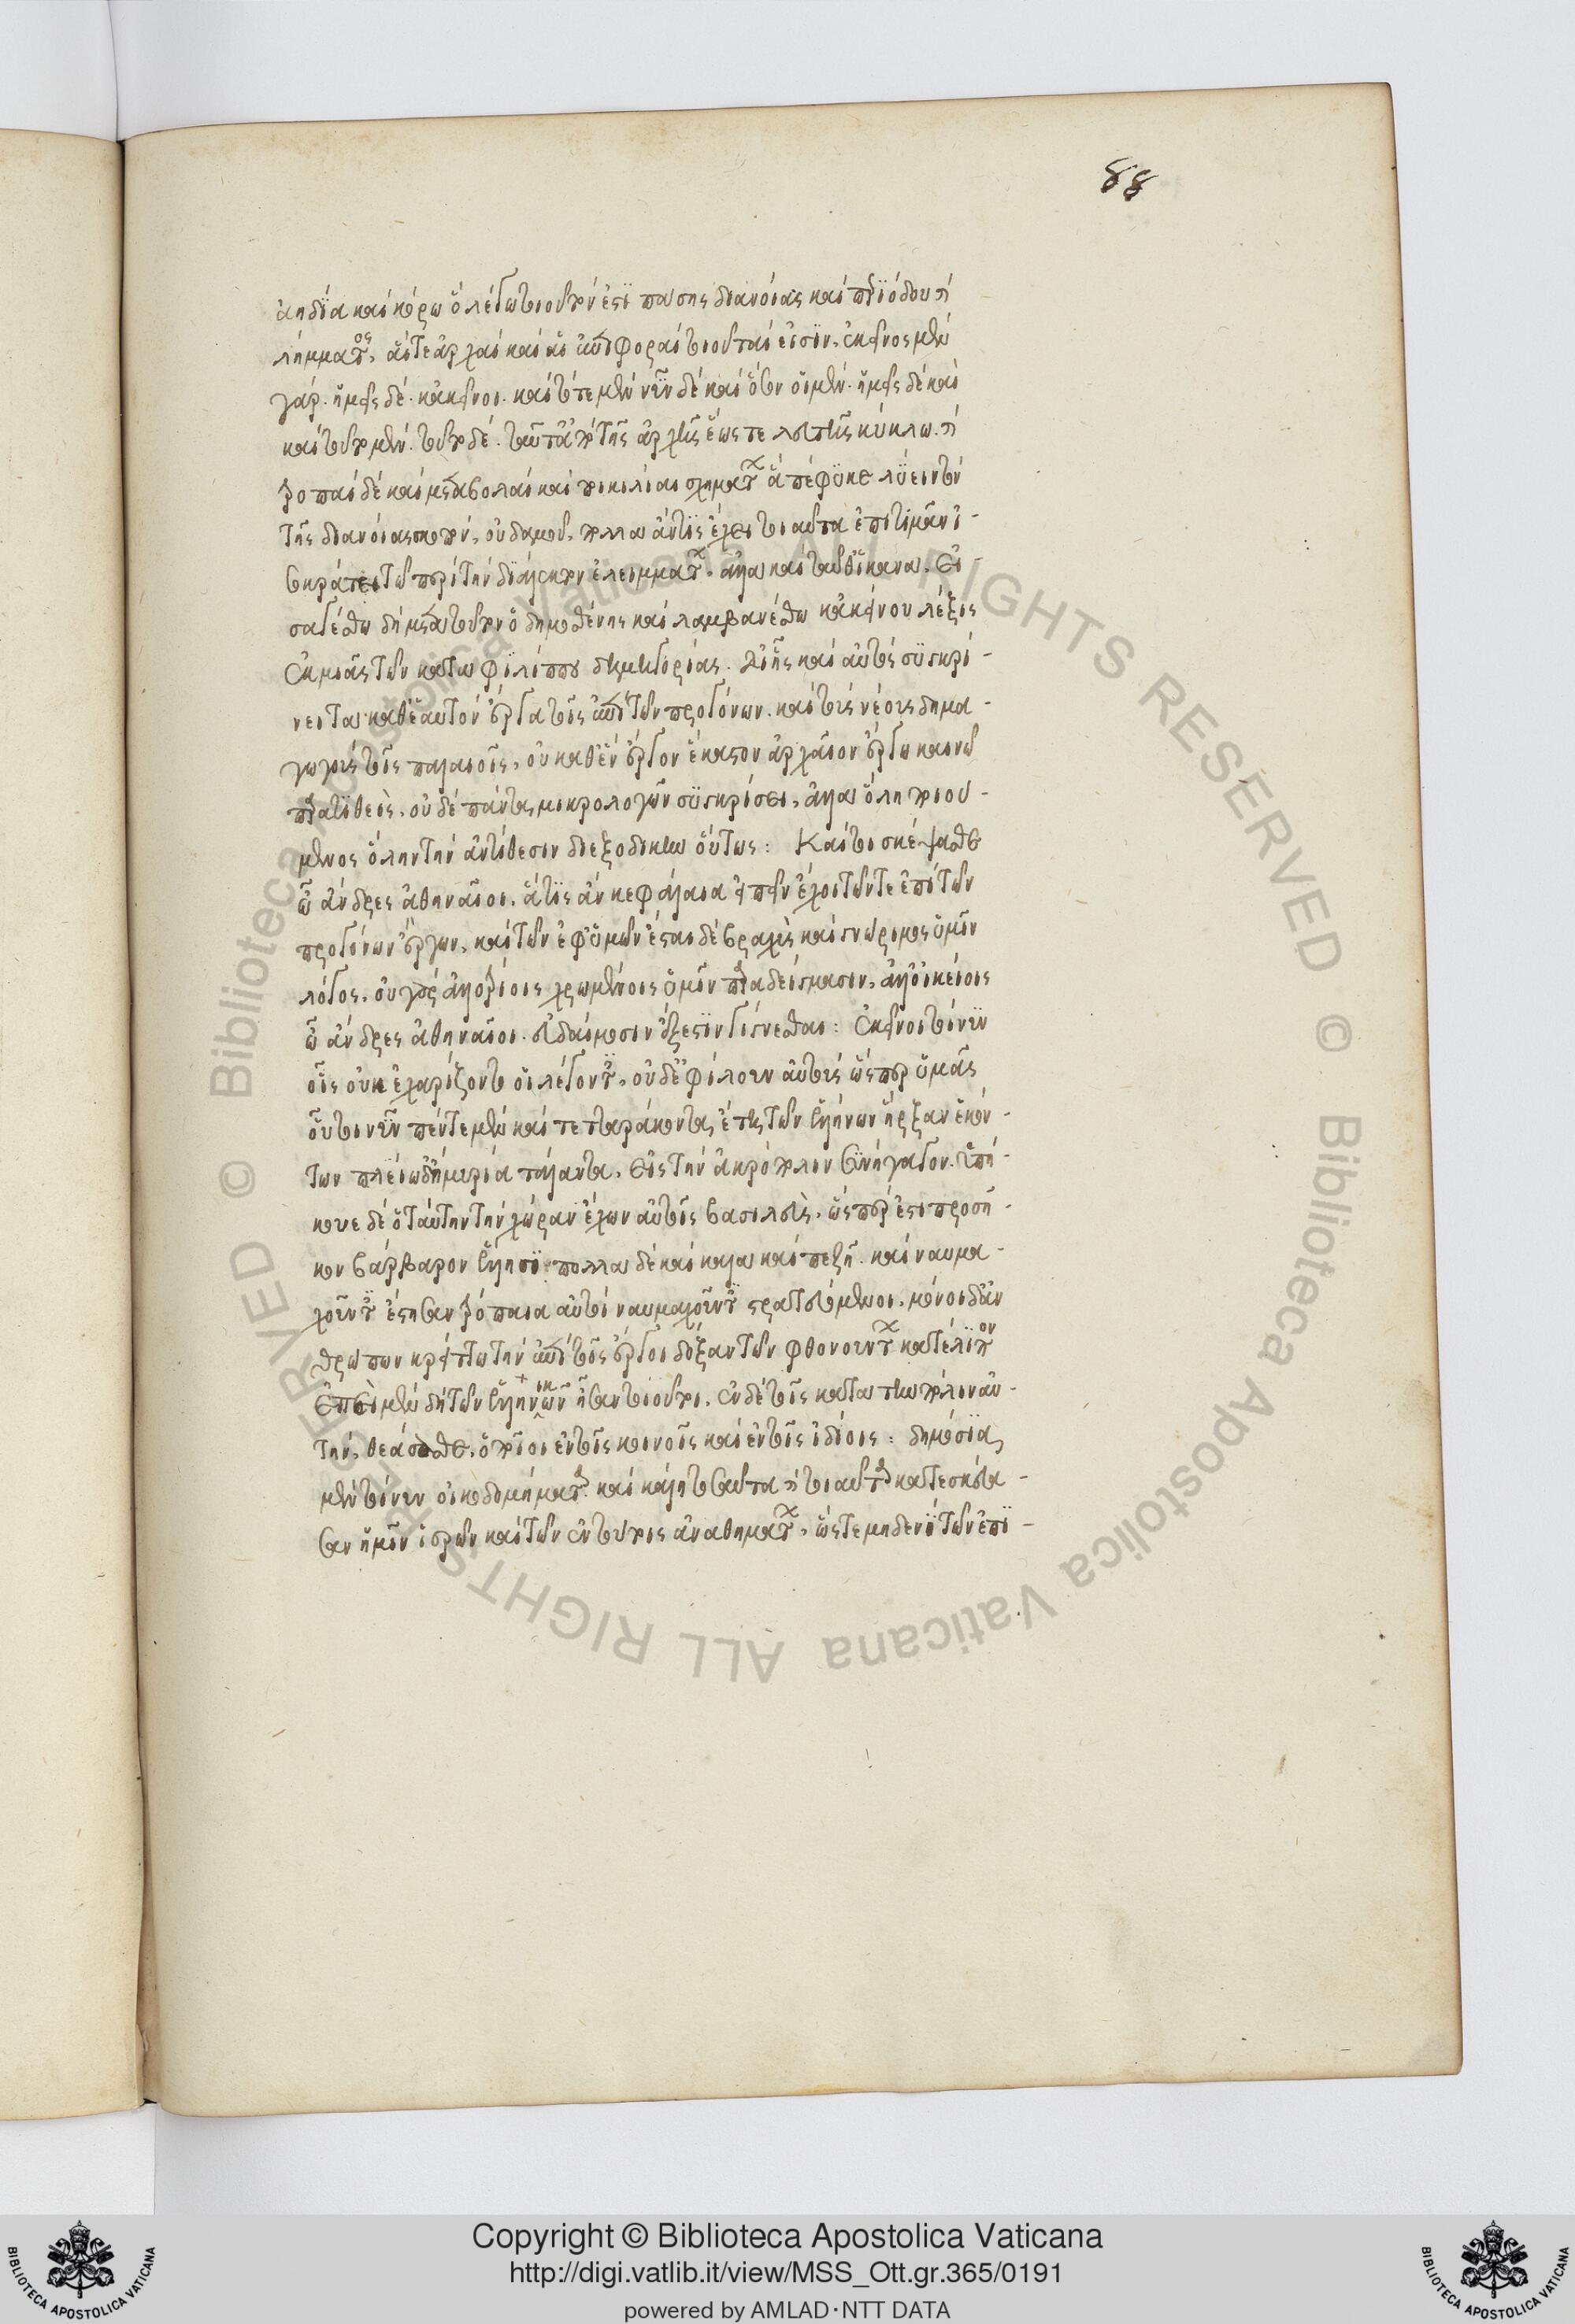 ἀηδία καὶ κόρω ὃ λέγω τοιοῦτόν ἐστι πάσης διανοίας καὶ περιόδου καὶ
λήμματος, αἵ τε ἀρχαὶ καὶ αἱ ἐπιφοραὶ τοιοῦταί εἰσιν. ἐκεῖνος μὲν
γάρ. ἡμεῖς δέ. κἀκεῖνοι. καὶ τότε μὲν νῦν δὲ καὶ ὅσον οἱ μὲν. ἡμεῖς δὲ καὶ
καὶ τοῦτο μέν. τοῦτο δέ. ταῦτα ἀπὸ τῆς ἀρχῆς ἕως τελευτῆς κύκλω. καὶ
τροπαὶ δὲ καὶ μεταβολαὶ καὶ ποικιλίαι σχημάτων ἃ πέφυκε λύειν τὸν
τῆς διανοίας κόπον, οὐδαμοῦ. πολλὰ ἄν τις ἔχοι τοιαῦτα ἐπιτιμᾶν ἰ-
σοκράτει τῶν περὶ τὴν διάλεκτον ἐλειμμάτων. ἀλλὰ καὶ ταῦθ' ἱκανά.
δὴ μετὰ τοῦτον ὁ δημοσθένης καὶ λαμβανέσθω κἀκείνου λέξις
ἐκ μιᾶς τῶν κατὰ φιλίππου δημηγορίας. δι' ἧς καὶ αὐτὸς συγκρί-
νει τὰ καθ' ἑαυτὸν ἔργα τοῖς ἐπὶ τῶν προγόνων. καὶ τοὺς νέους δημα-
γωγοὺς τοῖς παλαιοῖς, οὐ καθ' ἓν ἔργον ἕκαστον ἀρχαῖον ἔργω καινῶ
παρατιθεὶς. οὐδὲ πάντα μικρολογῶν συγκρίσει, ἀλλὰ ὅλη ποιού-
μενος ὅλην τὴν ἀντίθεσιν διεξοδικὴν οὕτως: Καίτοι σκέψασθε
ὦ ἄνδρες ἀθηναῖοι. ἅ τις ἂν κεφάλαια εἰπεῖν ἔχοι τῶν τε ἐπὶ τῶν
προγόνων ἔργων, καὶ τῶν ἐφ' ὑμῶν ἔσται δὲ βραχὺς καὶ γνώριμος ὑμῖν
λόγος. οὐ γὰρ ἀλλοτρίοις χρωμένοις ὑμῖν παραδείγμασιν, ἀλλ' οἰκείοις
ὦ ἄνδρες ἀθηναῖοι. εὐδαίμοσιν ἔξεστιν γίγνεσθαι: ἐκεῖνοι τοίνυν
οἷς οὐκ ἐχαρίζοντο οἱ λέγοντες, οὐδ' ἐφίλουν αὐτοὺς ὥσπερ ὑμᾶς
οὗτοι νῦν πέντε μὲν καὶ τετταράκοντα ἔτη τῶν ἑλλήνων ἦρξαν ἑκόν-
των πλείω δ' ἢ μύρια τάλαντα. εἰς τὴν ἀκρόπολιν ἀνήγαγον. ὑπή-
κουε δὲ ὁ ταύτην τὴν χώραν ἔχων αὐτοῖς βασιλεὺς. ὥσπερ ἐστὶ προσῆ-
κον βάρβαρον ἕλλησι: πολλὰ δὲ καὶ καλὰ καὶ πεζῆ. καὶ ναυμα-
χοῦντες ἔστησαν τρόπαια αὐτοὶ ναυμαχοῦντες στρατευόμενοι. μόνοι δ' ἀν
θρώπων κρείττω τὴν ἐπὶ τοῖς ἔργοις δόξαν τῶν φθονούντων κατέλιπον
ἐπὶ μὲν δὴ τῶν ἑλληνικῶν ἦσαν τοιοῦτοι. ἐν δὲ τοῖς κατὰ τὴν πόλιν αὐ-
τήν, θεάσασθε, ὁποῖοι ἐν τοῖς κοινοῖς καὶ ἐν τοῖς ἰδίοις: δημόσια
μὲν τοίνυν οἰκοδομήματα καὶ κάλλη τοσαῦτα καὶ τοιαῦτα κατεσκεύα-
σαν ἡμῖν ἱερῶν καὶ τῶν ἐν τούτοις ἀναθημάτων, ὥστε μηδενὶ τῶν ἐπι-
88
Copyright © Biblioteca Apostolica Vaticana
http://digi.vatlib.it/view/MSS_Ott.gr.365/0191
powered by AMLAD·NTT DATA
BIBLIOTECA APOSTOLICA VATICANA
BIBLIOTECA APOSTOLICA VATICANA
© Biblioteca Apostolica Vaticana ALL RIGHTS RESERVED
© Biblioteca Apostolica Vaticana ALL RIGHTS RESERVED